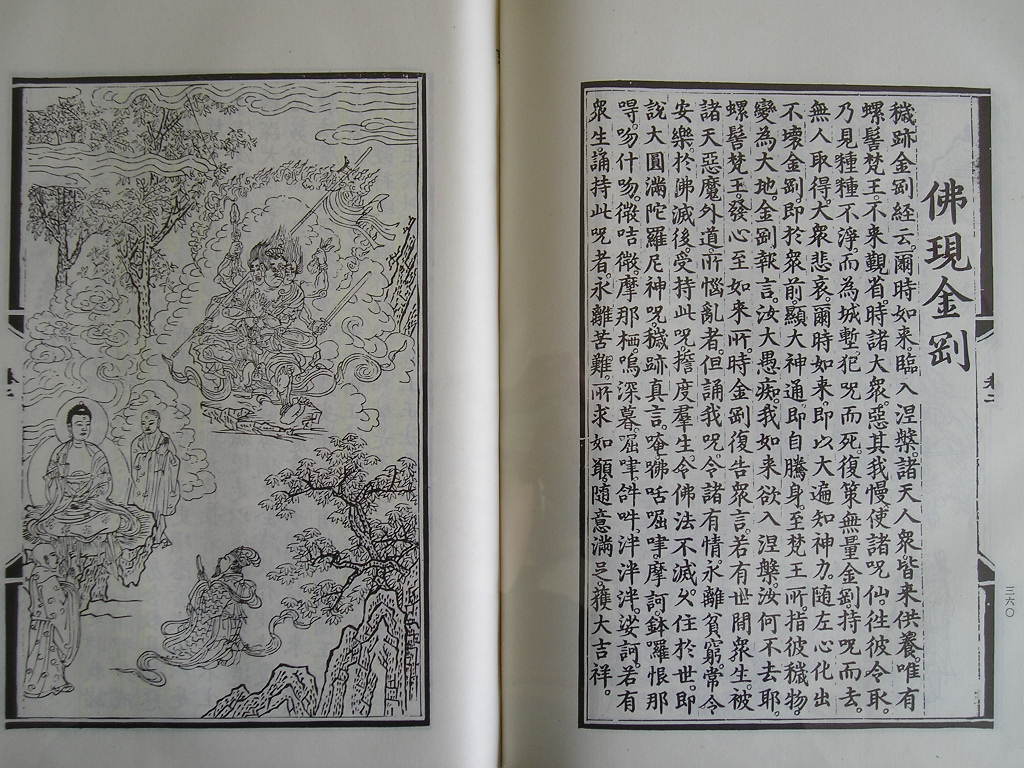 佛現金剛
穢跡金剛經云。爾時如来臨入涅槃。諸天人衆皆来供養。唯有
螺髻梵王。不来覲省。時諸大衆。惡其我慢。使諸呪仙。徃彼令取。
乃見種種不淨。而為城塹。犯呪而死。復策無量金剛。持呪而去。
無人取得。大衆悲哀。爾時如来。即以大遍知神力。随左心化出
不壞金剛。即於衆前。顯大神通。即自騰身。至梵王所。指彼穢物。
變為大地。金剛報言。汝大愚痴。我如来欲入涅槃。汝何不去耶。
螺髻梵王。發心至如来所。時金剛復告衆言。若有世間衆生。被
諸天惡魔外道。所惱亂者。但誦我呪。令諸有情。永離貧窮。常令
安樂。於佛滅後。受持此呪。擔度羣生。令佛法不滅。乆住於世。即
説大圓滿陀羅尼神呪。穢跡真言。唵㘑咶啒𠸪。摩訶鉢囉恨那
㖶。吻什吻。微咭微。摩那栖。嗚深暮。啒𠸪。𤙖𤙖。泮泮泮。娑訶。若有
衆生誦持此呪者。永離苦難。所求如願。随意滿足。獲大吉祥。
卷二
三六〇